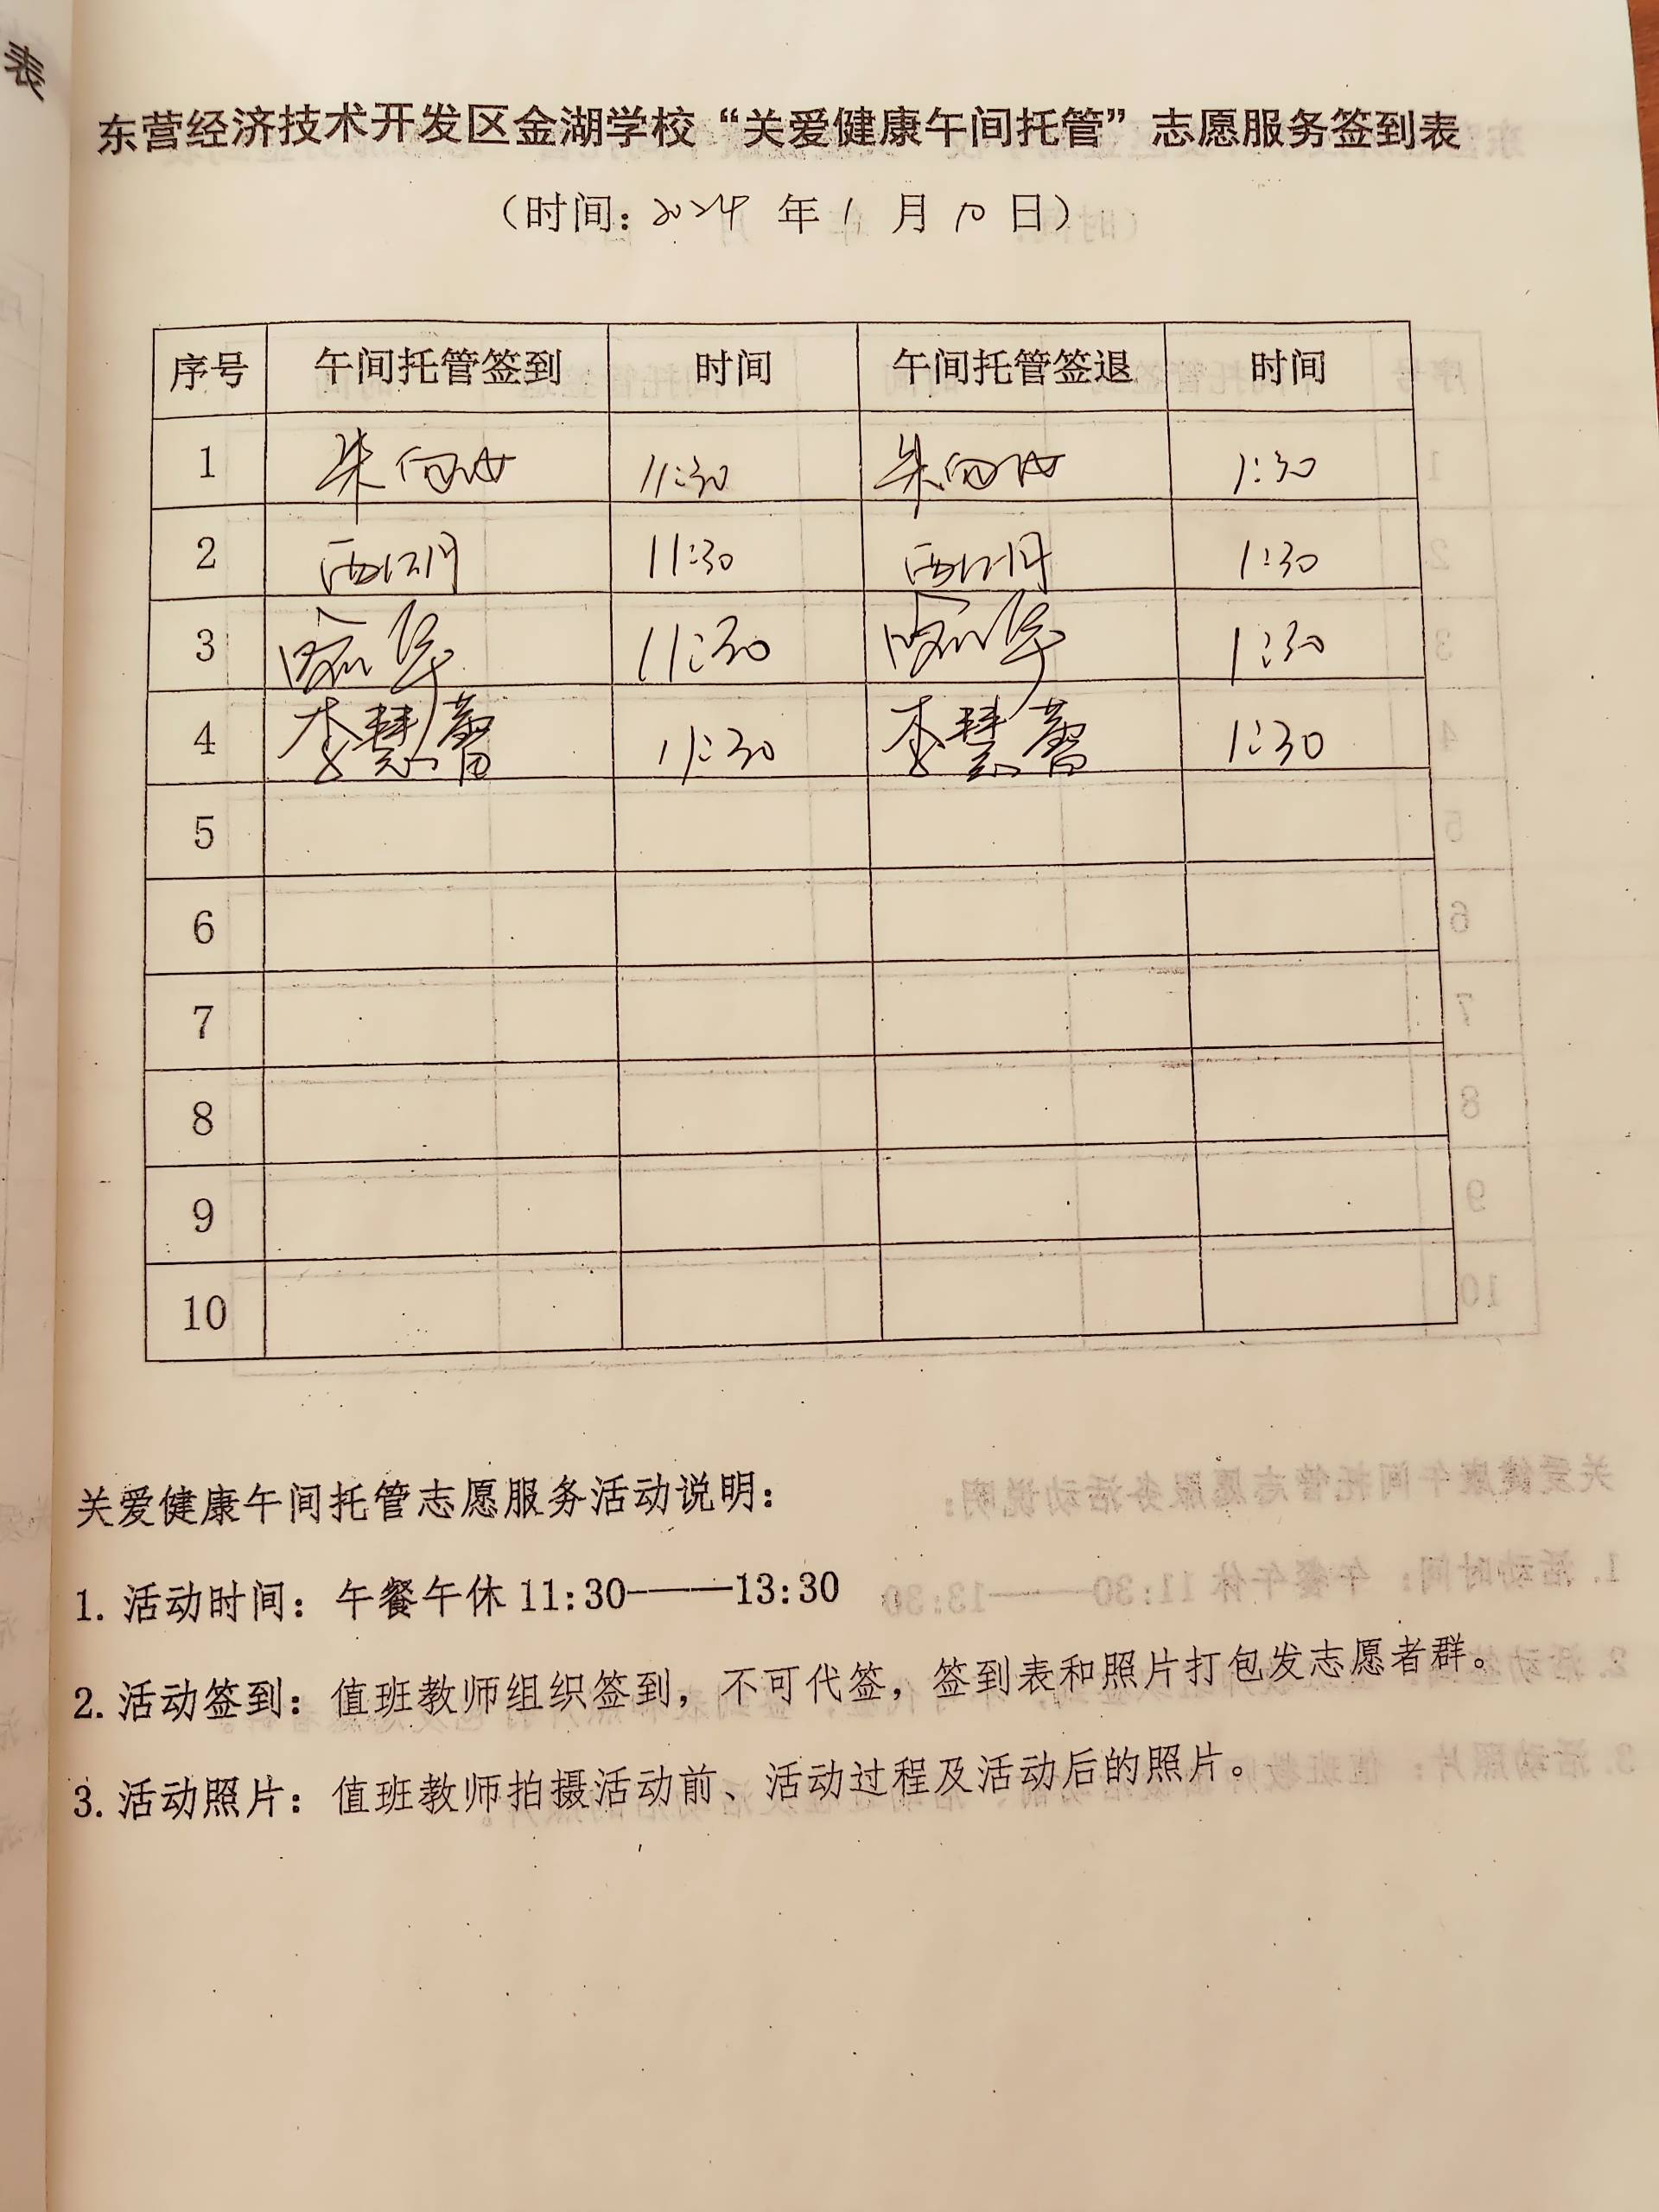 表
东营经济技术开发区金湖学校“关爱健康午间托管”志愿服务签到表
（时间：2024 年 1 月 10 日）
序号 午间托管签到 时间 午间托管签退 时间
1 朱 11:30 朱 1:30
2 西江月 11:30 西江月 1:30
3 11:30 1:30
4 李慧馨 11:30 李慧馨 1:30
5
6
7
8
9
10
关爱健康午间托管志愿服务活动说明：
1. 活动时间：午餐午休 11:30————13:30
2. 活动签到：值班教师组织签到，不可代签，签到表和照片打包发志愿者群。
3. 活动照片：值班教师拍摄活动前、活动过程及活动后的照片。